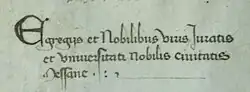 Egregijs et Nobilibus Viris Juratis
et vniuersitati Nobilis Ciuitatis
Messane . : ,